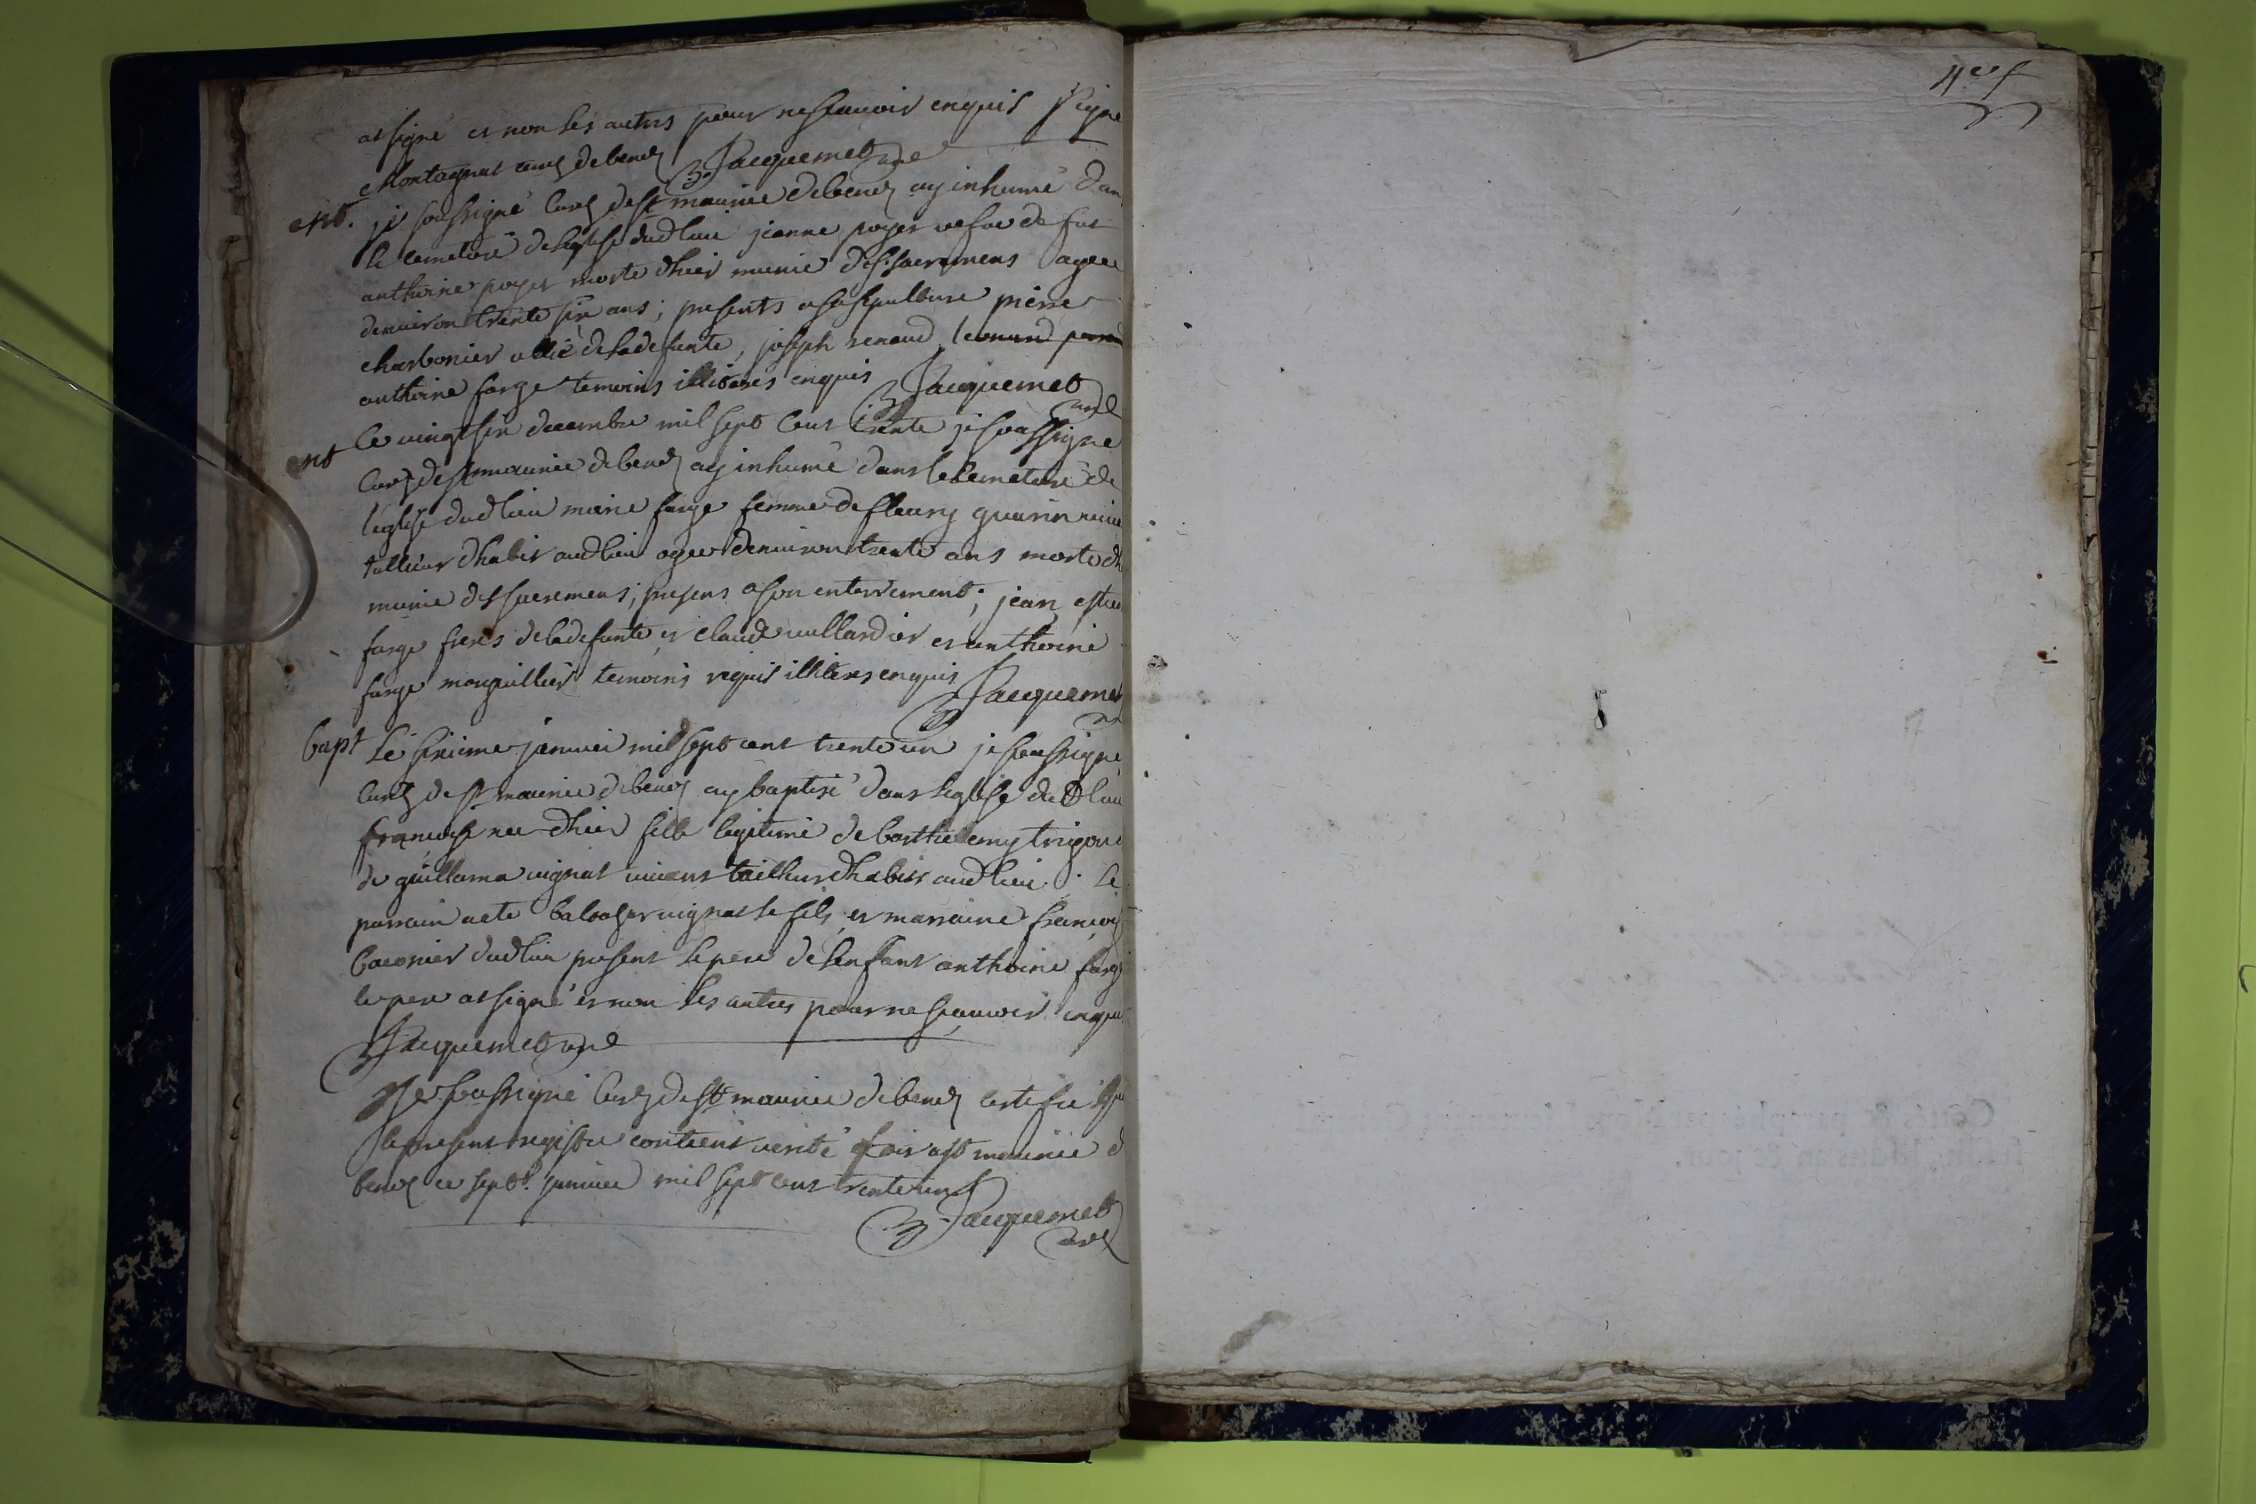 at signé et non les autres pour ne scauoir enquis signe
Montagnat curé de benet Jacquemet curé
ent. je soussigné curé de st maurice de benet ay inhumé dan
le cemetiere de leglise dud lieu jeanne poyet vefue de fut
anthoine poyet morte d'hier munie des sacremens agee
denuiron trente six ans; presents a sa sepulture pierre
charbonier allié de la defunte, joseph renaud,
anthoine farge temoins illiteres enquis Jacquemet
curé
ent Le vingt six decembre mil sept cent trente je soussigne
curé de st maurice de benet ay inhumé dans le cemetiere de
leglise dud lieu marie farge femme de fleury guerin
tallieur dhabit aud lieu agee denuiron trente ans morte
munie des sacremens; presens a son enterrement; jean
farge freres de la defunte, et claude uullardier et anthoine
farge marguillier temoins requis illiteres enquis Jacquemet
bapt Le sixieme januier mil sept cent trente un je soussigne
curé de st maurice de benet ay baptisé dans leglise dud lieu
francoise nee d'hier fille legitime de barthelemy
de guillama vignat tailleur dhabits aud lieu. Le
parrain a ete baltazar vignat le fils, et marraine françoise
baconier dud lieu present le pere de lenfant anthoine farge
le pere at signé et non les autres pour ne sçauoir enquis
Jacquemet curé
Je soussigné curé de st maurice de benet certifie que
le present registre contient verité fait a st maurice d
benet ce sept januier mil sept cent trente un
Jacquemet
curé